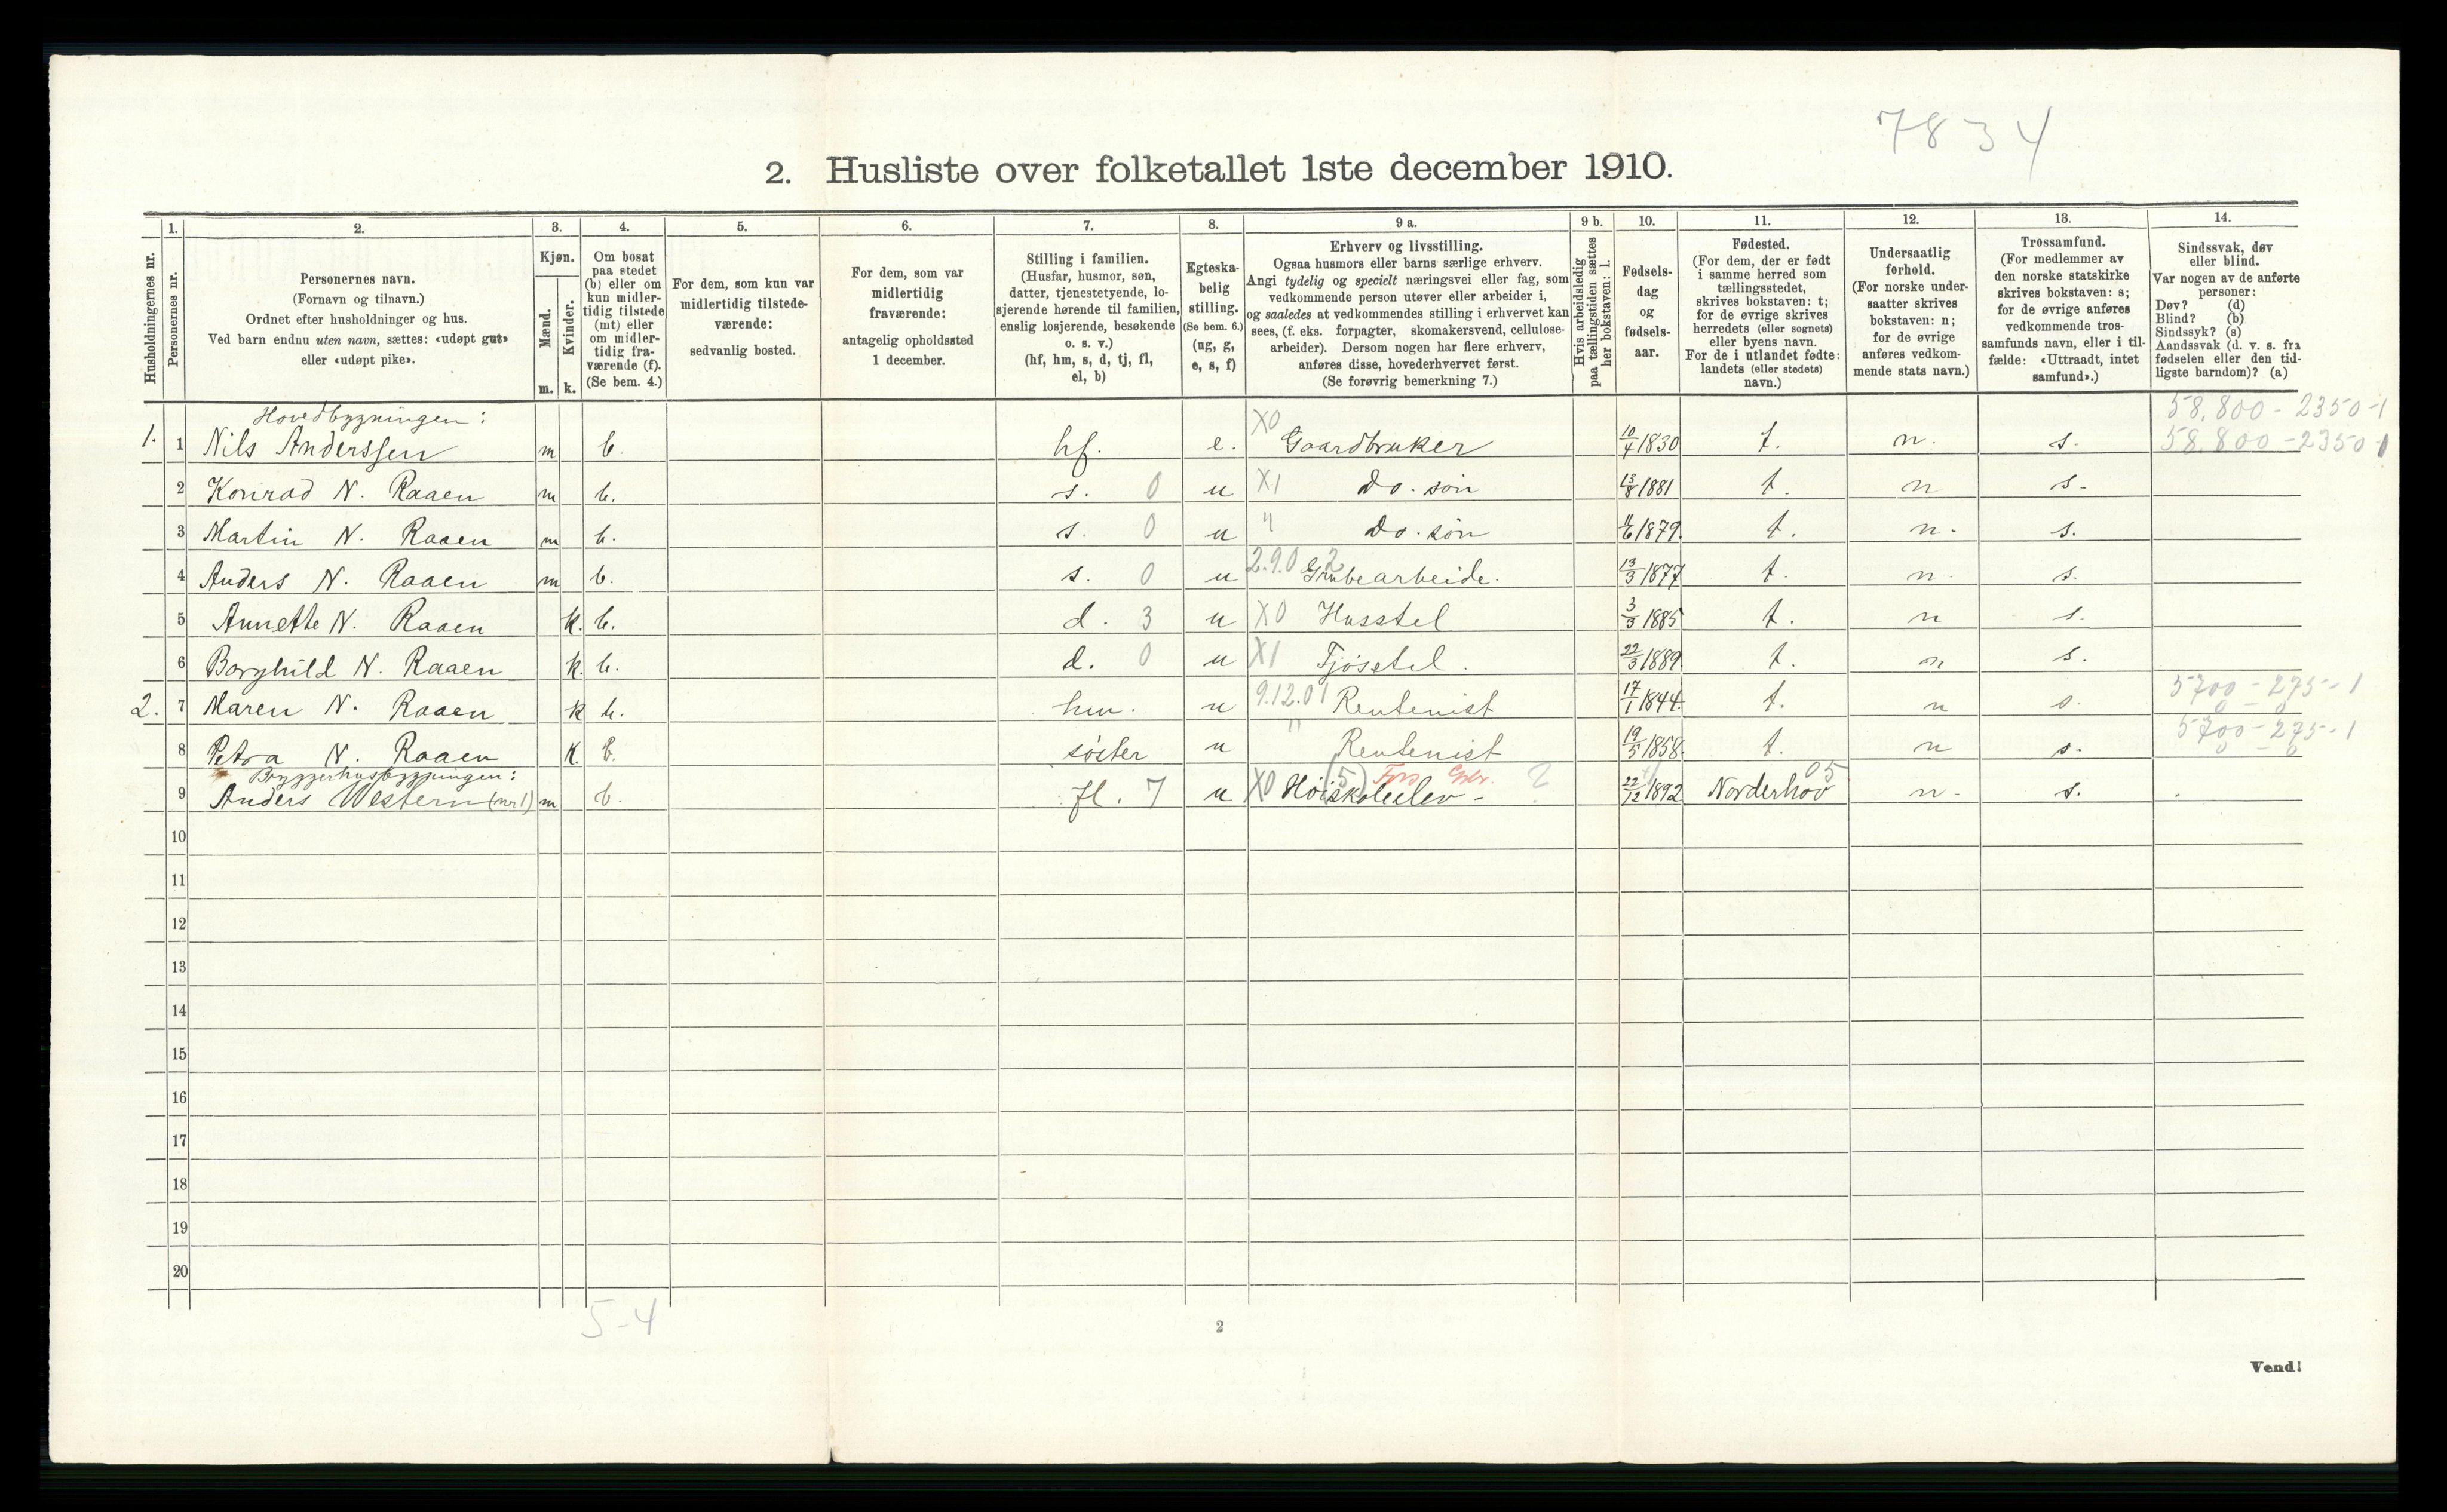 7834
2. Husliste over folketallet 1ste december 1910.
Husholdningernes nr.
1.
Personernes nr.
2.
Personernes navn.
(Fornavn og tilnavn.)
Ordnet efter husholdninger og hus.
Ved barn endnu uten navn, sættes: «udøpt gut»
eller «udøpt pike».
3.
Kjøn.
Mænd.
m.
Kvinder.
k.
4.
Om bosat
paa stedet
(b) eller om
kun midler-
tidig tilstede
(mt) eller
om midler-
tidig fra-
værende (f).
(Se bem. 4.)
5.
For dem, som kun var
midlertidig tilstede-
værende:
sedvanlig bosted.
6.
For dem, som var
midlertidig
fraværende:
antagelig opholdssted
1 december.
7.
Stilling i familien.
(Husfar, husmor, søn,
datter, tjenestetyende, lo-
sjerende hørende til familien,
enslig losjerende, besøkende
o. s. v.)
(hf, hm, s, d, tj, fl,
el, b)
8.
Egteska-
belig
stilling.
(Se bem. 6.)
(ug, g,
e, s, f)
9 a.
Erhverv og livsstilling.
Ogsaa husmors eller barns særlige erhverv.
Angi tydelig og specielt næringsvei eller fag, som
vedkommende person utøver eller arbeider i,
og saaledes at vedkommendes stilling i erhvervet kan
sees, (f. eks. forpagter, skomakersvend, cellulose-
arbeider). Dersom nogen har flere erhverv,
anføres disse, hovederhvervet først.
(Se forøvrig bemerkning 7.)
9 b.
Hvis arbeidsledig
paa tællingstiden sættes
her bokstaven: l.
10.
Fødsels-
dag
og
fødsels-
aar.
11.
Fødested.
(For dem, der er født
i samme herred som
tællingsstedet,
skrives bokstaven: t;
for de øvrige skrives
herredets (eller sognets)
eller byens navn.
For de i utlandet fødte:
landets (eller stedets)
navn.)
12.
Undersaatlig
forhold.
(For norske under-
saatter skrives
bokstaven: n;
for de øvrige
anføres vedkom-
mende stats navn.)
13.
Trossamfund.
(For medlemmer av
den norske statskirke
skrives bokstaven: s;
for de øvrige anføres
vedkommende tros-
samfunds navn, eller i til-
fælde: «Uttraadt, intet
samfund».)
14.
Sindssvak, døv
eller blind.
Var nogen av de anførte
personer:
Døv? (d)
Blind? (b)
Sindssyk? (s)
Aandssvak (d. v. s. fra
fødselen eller den tid-
ligste barndom)? (a)
Hovedbygningen: 58.800-2350-1
1. 1 Nils Anderssen m b. hf. e. X0 Gaardbruker 10/4 1830 t. n. s. 58.800-2350-1
2 Konrad N. Raaen m b. s. 0 u X1 Do. søn 13/8 1881 t. n s.
3 Martin N. Raaen m b. s. 0 u " Do. søn 11/6 1879 t. n. s.
4 Anders N. Raaen m b. s. 0 u 2.9.0 Grubearbeide. 13/3 1877 t. n. s.
5 Annette N. Raaen k. b. d. 3 u X0 Husstel 3/3 1885 t. n s.
6 Borghild N. Raaen k. b. d. 0 u X1 Fjøsstel. 22/3 1889 t. n s.
2. 7 Maren N. Raaen k b. hm. u 9.12.01 Rentenist 17/1 1844 t. n s. 5700-275-1
8 Petra N. Raaen k. b. søster u " Rentenist 19/5 1858. t. n s. 5700-275-1
Bryggerhusbygningen:
9 Anders Western (nr 1) m b. fl. 7 u X0 Høiskoleelev- (5) Fors Gbr. 2 22/12 1892 Norderhov 05 n. s.
10
11
12
13
14
15
16
17
18
19
20
5-4
2
Vend!